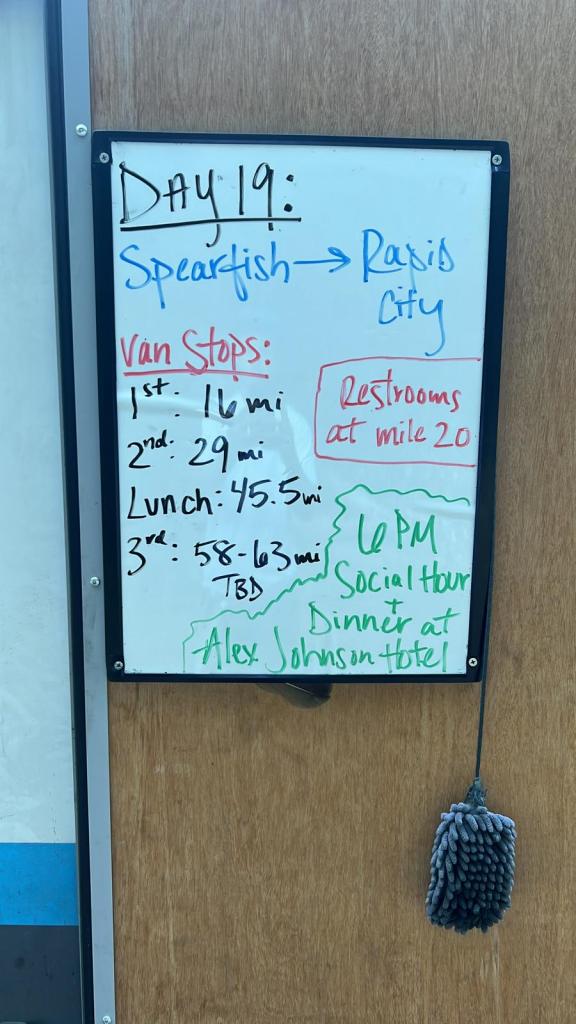 DAY 19:
Spearfish → Rapid
City
Van Stops:
1st: 16 mi
Restrooms
at mile 20
2nd: 29 mi
Lunch: 45.5 mi
3rd: 58-63 mi
TBD
6 PM
Social Hour
+
Dinner at
Alex Johnson Hotel